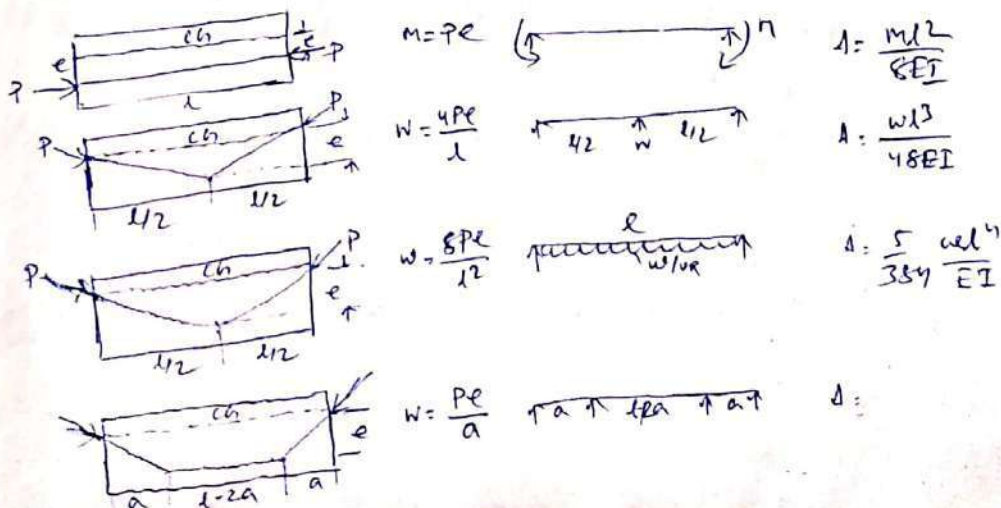 CG
e
P
P
l
M = Pe
M
Δ = Ml²/8EI
P
CG
P
e
l/2 l/2
W = 4Pe/l
l/2 W l/2
Δ = Wl³/48EI
P
CG
P
e
l/2 l/2
w = 8Pe/l²
l
Δ = 5/384 wl⁴/EI
CG
e
a l-2a a
W = Pe/a
a a
Δ =